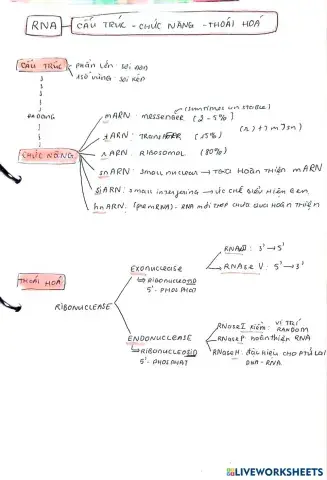 RNA CẤU TRÚC - CHỨC NĂNG - THOÁI HOÁ
CẤU TRÚC phần lớn: sợi đơn
1 số vùng: sợi kép
ĐA DẠNG
(sometimes unstable)
mARN: messenger (2-5%)
tARN: TRANSFER (15%)
CHỨC NĂNG rARN: RIBOSOMAL (80%)
snARN: small nuclear → TGIA HOÀN THIỆN mARN
siARN: small interfering → ỨC CHẾ BIỂU HIỆN GEN
hnARN: (premRNA) - RNA mới tổng hợp chưa qua HOÀN THIỆN
THOÁI HOÁ
RIBONUCLEASE
EXONUCLEASE
↳ RIBONUCLEOTID
5' - PHOSPHAT
RNAse II: 3' → 5'
RNAse V: 5' → 3'
ENDONUCLEASE
↳ RIBONUCLEOSID
5' - PHOSPHAT
RNAse I kiềm: VỊ TRÍ RANDOM
RNAse P: hoàn thiện RNA
RNAse H: đặc hiệu cho PTử LAI
DNA - RNA
LIVEWORKSHEETS